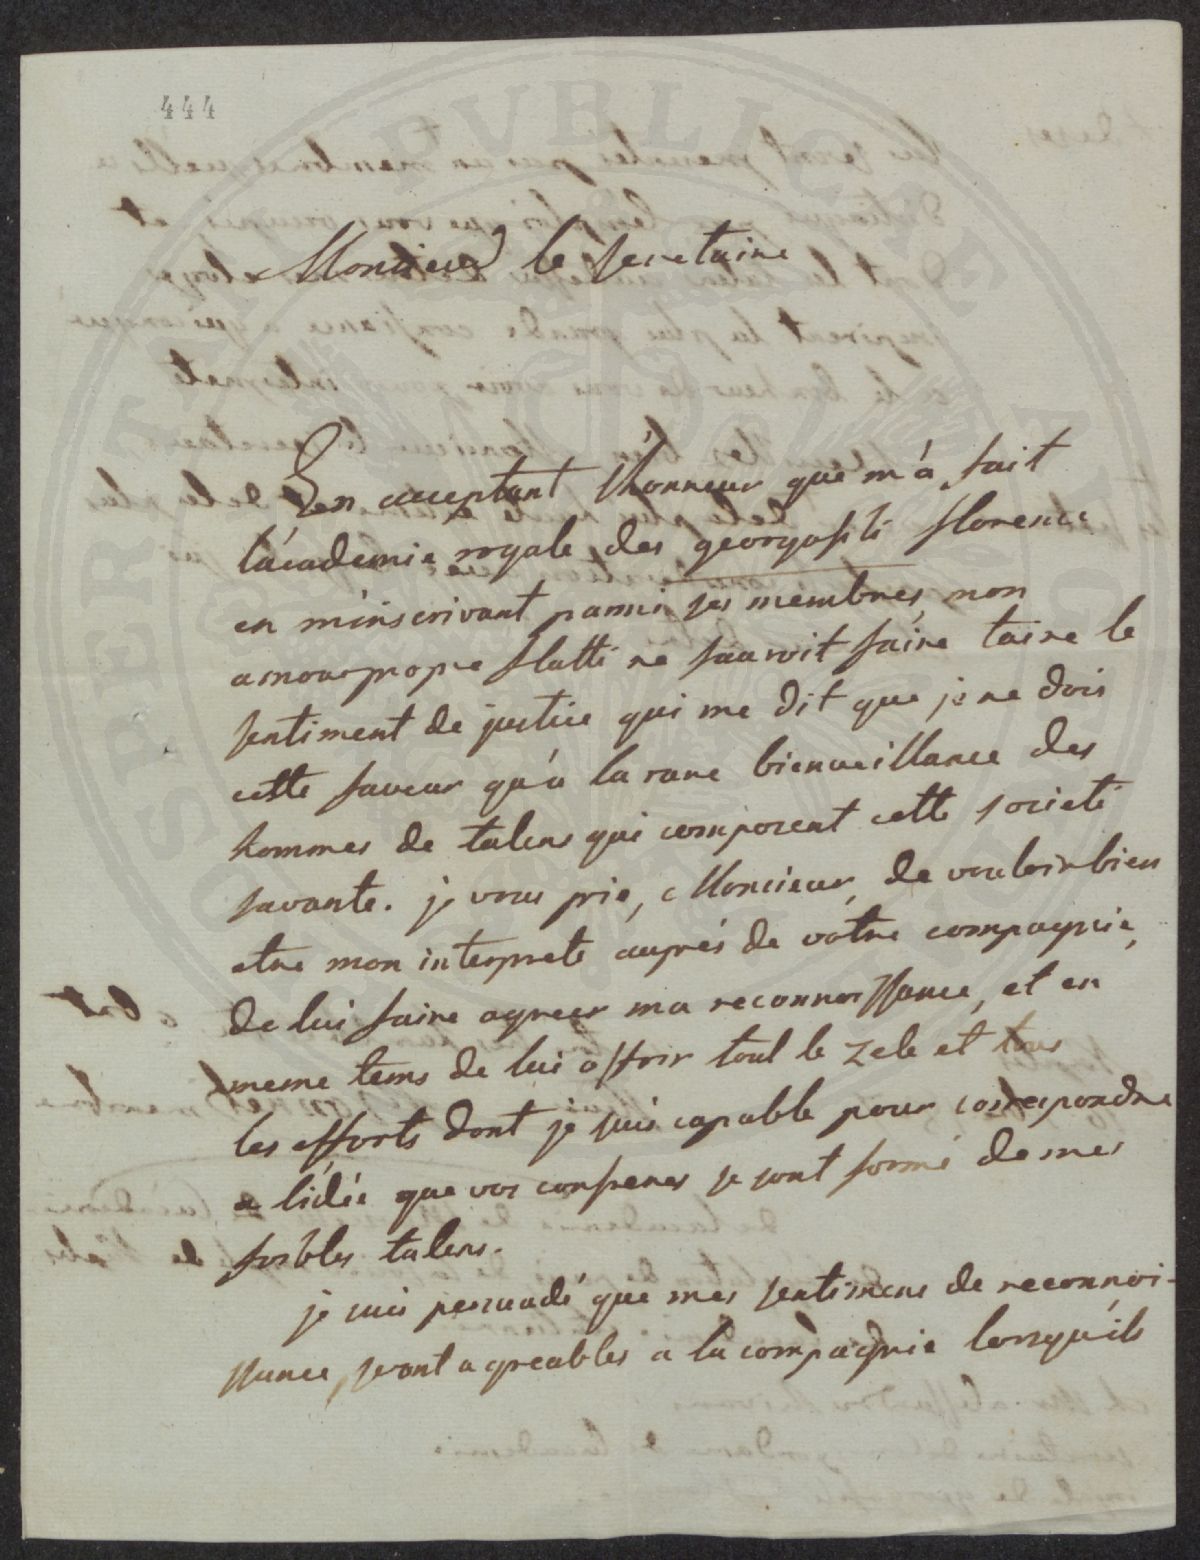 444
Monsieur le secretaire
En acceptant l'honneur que m'a fait
l'académie royale des georgofili florence
en m'inscrivant parmi ses membres, mon
amour propre flatté ne sauroit faire taire le
sentiment de justice qui me dit que je ne dois
cette faveur qu'a la rare bienveillance des
hommes de talens qui composent cette societé
savante. je vous prie, Monsieur, de vouloir bien
etre mon interprete auprés de votre compagnie,
de lui faire agreer ma reconnoissance, et en
meme tems de lui offrir tout le zele et tous
les efforts dont je suis capable pour correspondre
a l'idée que vos confreres se sont formé de mes
foibles talens.
je suis persuadé que mes sentimens de reconnoi-
ssance, seront agreables a la compagnie lorsqu'ils